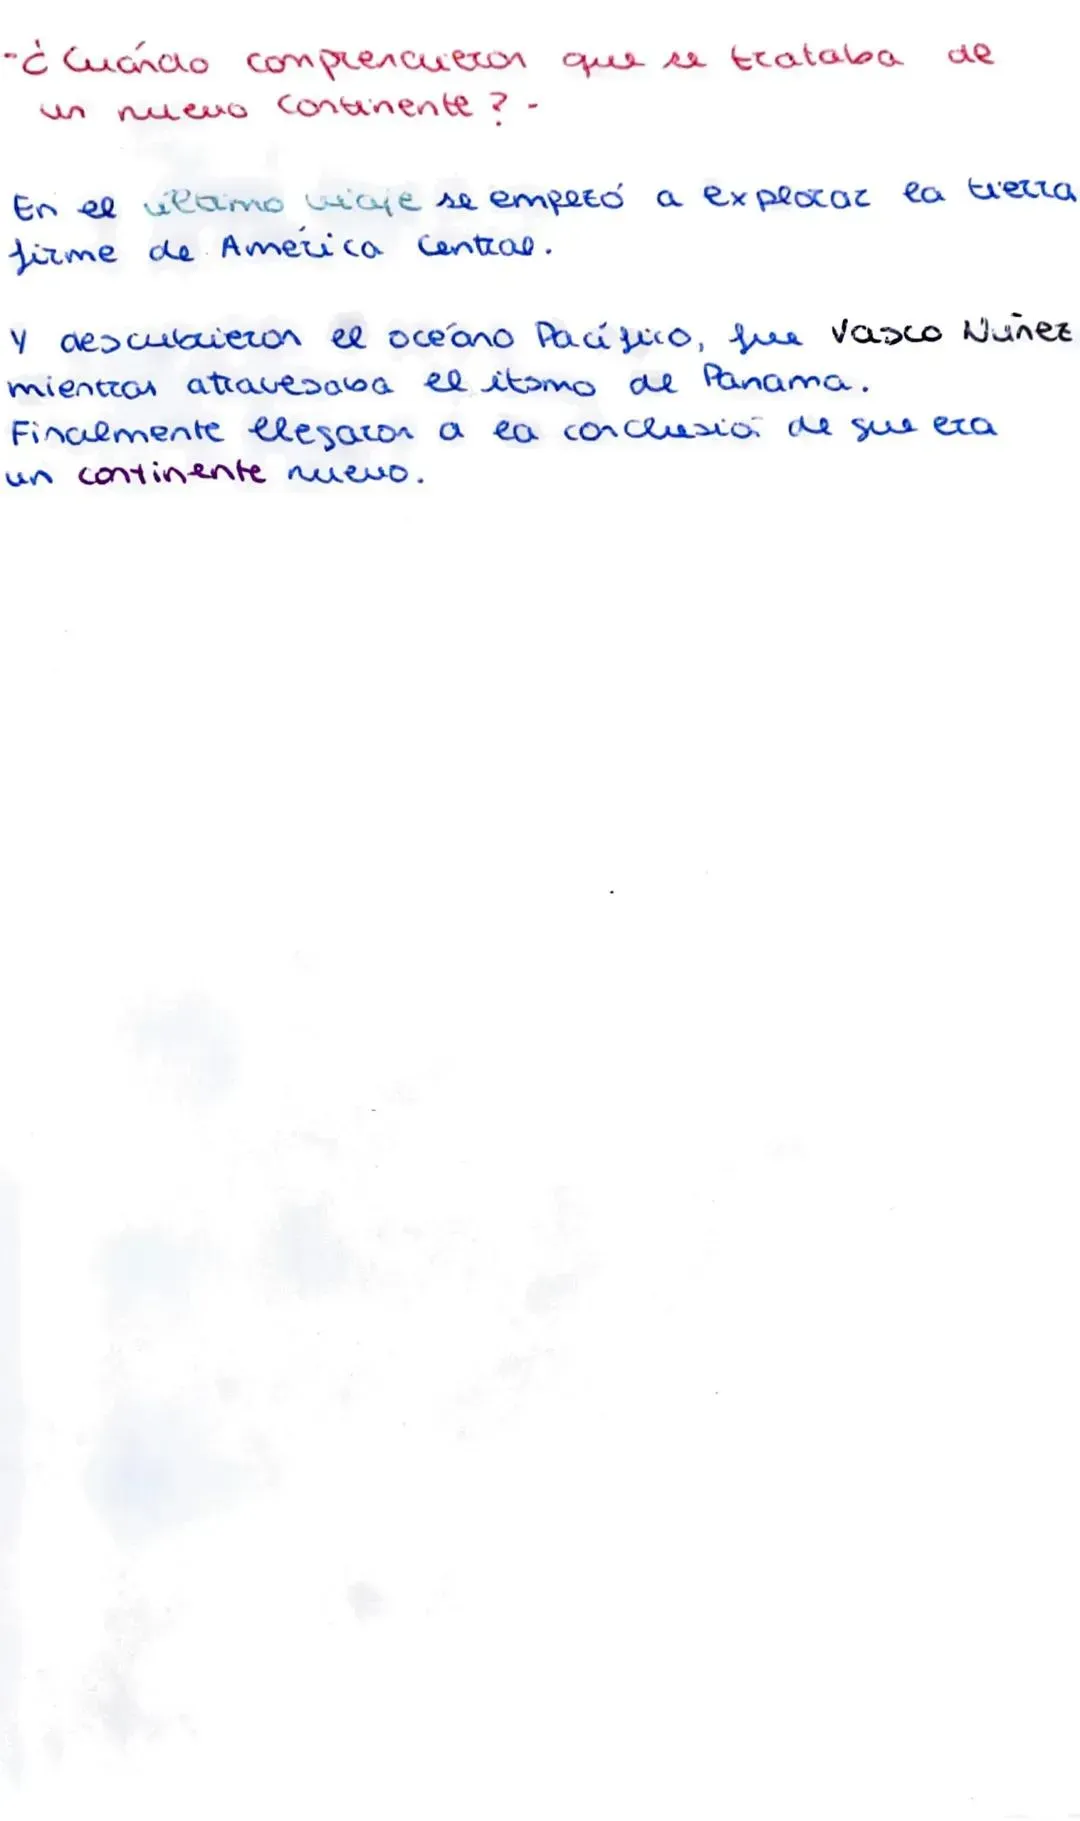 -¿Cuándo comprendieron que se trataba de
un nuevo continente?-
En el último viaje se empezó a explorar la tierra
firme de América Central.
Y descubrieron el océano Pacífico, fue Vasco Nuñez
mientras atravesaba el itsmo de Panama.
Finalmente llegaron a la conclusió de que era
un continente nuevo.